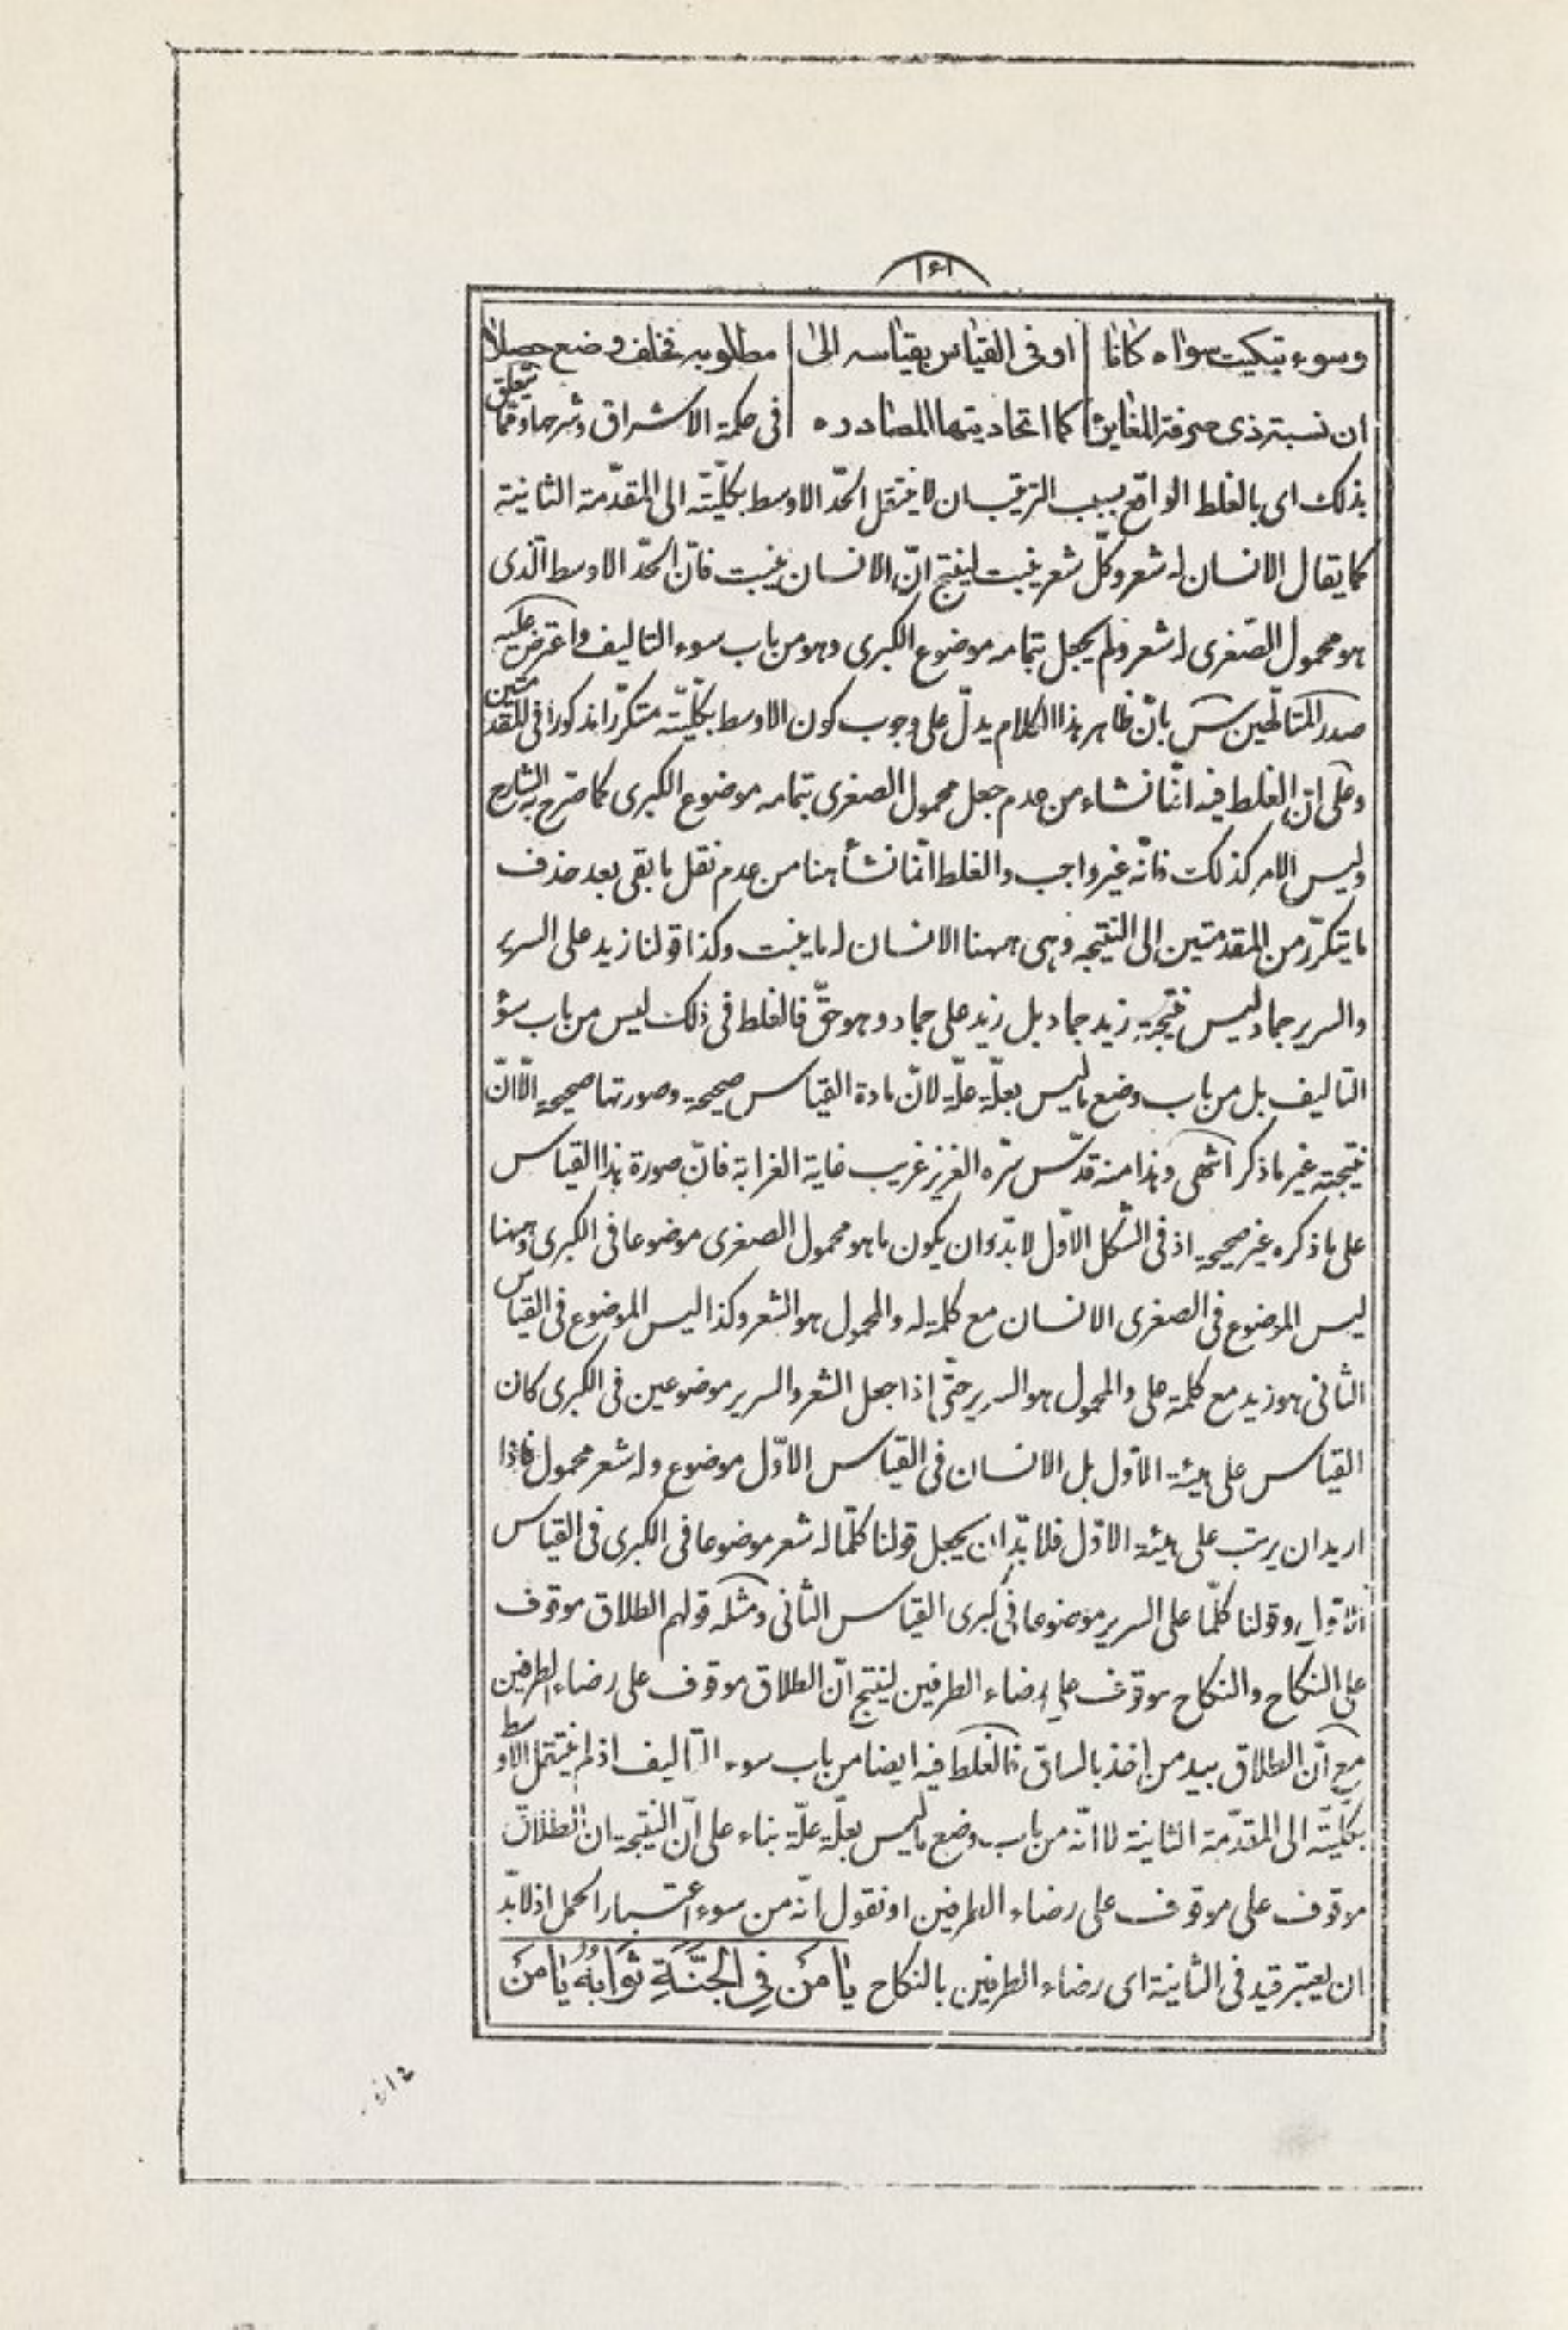 ١٦١
وسوء تبكيت سواه كانا او فى القياس بقياسه الى مطلوبه فخلف وضع حصلا
ان نسبة ذى صرفة المغايرة كما اتحاديتها المصادره فى حكمة الاشراق وشرحها ومما يتعلق
بذلك اى بالغلط الواقع بسبب الترتيب ان لا ينتقل الحدّ الاوسط بكليّته الى المقدّمة الثانية
كما يقال الانسان له شعر وكلّ شعر ينبت لينتج انّ الانسان ينبت فانّ الحدّ الاوسط الّذى
هو محمول الصّغرى له شعر ولم يجعل بتمامه موضوع الكبرى وهو من باب سوء التاليف واعترض عليه
صدر المتالّهين س بانّ ظاهر هذا الكلام يدلّ على وجوب كون الاوسط بكليّته متكرّرا مذكورا فى المقدمتين
وعلى انّ الغلط فيه انّما نشاء من عدم جعل محمول الصغرى بتمامه موضوع الكبرى كما صرّح به الشارح
وليس الامر كذلك فانّه غير واجب والغلط انّما نشأ هنا من عدم نقل ما بقى بعد حذف
ما يتكرّر من المقدمتين الى النتيجه وهى ههنا الانسان له ما ينبت وكذا قولنا زيد على السرير
والسرير جماد ليس نتيجته زيد جماد بل زيد على جماد وهو حقّ فالغلط فى ذلك ليس من باب سؤ
التاليف بل من باب وضع ما ليس بعلّة علّة لانّ مادة القياس صحيحة وصورتها صحيحه الّا انّ
نتيجته غير ما ذكر انتهى وهذا منه قدّس سرّه العزيز غريب غاية الغرابة فانّ صورة هذا القياس
على ما ذكره غير صحيحه اذ فى الشّكل الاوّل لا بدّ وان يكون ما هو محمول الصغرى موضوعا فى الكبرى وههنا
ليس الموضوع فى الصغرى الانسان مع كلمة له والمحمول هو الشعر وكذا ليس الموضوع فى القياس
الثانى هو زيد مع كلمة على والمحمول هو السرير حتّى اذا جعل الشعر والسرير موضوعين فى الكبرى كان
القياس على هيئة الاوّل بل الانسان فى القياس الاوّل موضوع وله شعر محمول فاذا
اريد ان يرتب على هيئة الاوّل فلا بدّ ان يجعل قولنا كلّما له شعر موضوعا فى الكبرى فى القياس
الاوّل وقولنا كلّما على السرير موضوعا فى كبرى القياس الثانى ومثله قولهم الطلاق موقوف
على النكاح والنكاح موقوف على رضاء الطرفين لينتج انّ الطلاق موقوف على رضاء الطرفين
مع انّ الطلاق بيد من اخذ بالساق فالغلط فيه ايضا من باب سوء التاليف اذ لم ينتقل الاوسط
بكليّته الى المقدّمة الثانية لا انّه من باب وضع ما ليس بعلّة علّة بناء على انّ النتيجة ان الطلاق
موقوف على موقوف على رضاء الطرفين او نقول انّه من سوء اعتبار الحمل اذ لا بدّ
ان يعتبر قيد فى الثانية اى رضاء الطرفين بالنكاح يٰا مَنْ فِى الْجَنَّةِ ثَوٰابُهُ يٰا مَنْ